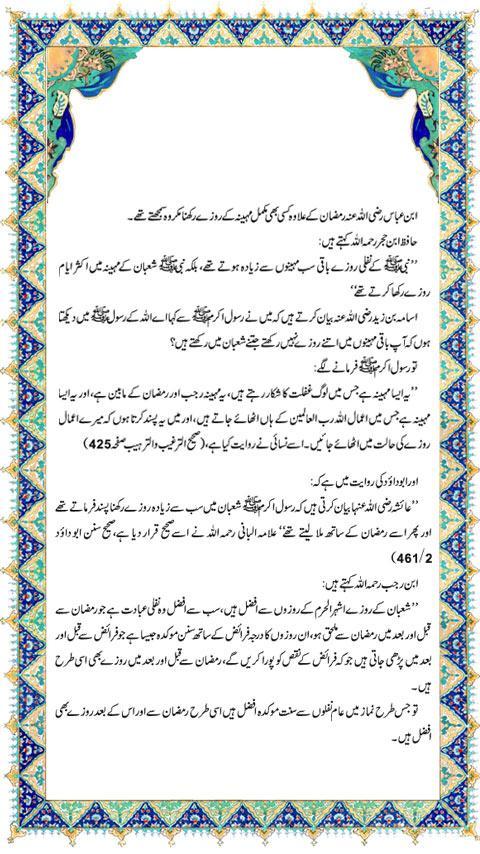 ابن عباس رضی اللہ عنہ رمضان کے علاوہ کسی بھی مکمل مہینہ کے روزے رکھنا مکروہ سمجھتے تھے۔
حافظ ابن حجر رحمہ اللہ کہتے ہیں:
’’نبی ﷺ کے نفلی روزے باقی سب مہینوں سے زیادہ ہوتے تھے، بلکہ نبی ﷺ شعبان کے مہینہ میں اکثر ایام
روزے رکھا کرتے تھے‘‘
اسامہ بن زید رضی اللہ عنہ بیان کرتے ہیں کہ میں نے رسول اکرم ﷺ سے کہا اے اللہ کے رسول ﷺ میں دیکھتا
ہوں کہ آپ باقی مہینوں میں اتنے روزے نہیں رکھتے جتنے شعبان میں رکھتے ہیں؟
تو رسول اکرم ﷺ فرمانے لگے:
’’یہ ایسا مہینہ ہے جس میں لوگ غفلت کا شکار رہتے ہیں، یہ مہینہ رجب اور رمضان کے مابین ہے، اور یہ ایسا
مہینہ ہے جس میں اعمال اللہ رب العالمین کے ہاں اٹھائے جاتے ہیں، اور میں یہ پسند کرتا ہوں کہ میرے اعمال
روزے کی حالت میں اٹھائے جائیں۔ اسے نسائی نے روایت کیا ہے، (صحیح الترغیب والترہیب صفحہ 425)
اور ابو داؤد کی روایت میں ہے کہ:
’’عائشہ رضی اللہ عنہا بیان کرتی ہیں کہ رسول اکرم ﷺ شعبان میں سب سے زیادہ روزے رکھنا پسند فرماتے تھے
اور پھر اسے رمضان کے ساتھ ملا لیتے تھے‘‘ علامہ البانی رحمہ اللہ نے اسے صحیح قرار دیا ہے، صحیح سنن ابو داؤد
461/2)
ابن رجب رحمہ اللہ کہتے ہیں:
’’شعبان کے روزے اشہر الحرم کے روزوں سے افضل ہیں، سب سے افضل وہ نفلی عبادت ہے جو رمضان سے
قبل اور بعد میں رمضان سے ملحق ہو، ان روزوں کا درجہ فرائض کے ساتھ سنن موکدہ جیسا ہے جو فرائض سے قبل اور
بعد میں پڑھی جاتی ہیں جو کہ فرائض کے نقص کو پورا کریں گے، رمضان سے قبل اور بعد میں روزے بھی اسی طرح
ہیں۔
تو جس طرح نماز میں عام نفلوں سے سنت موکدہ افضل ہیں اسی طرح رمضان سے اور اس کے بعد روزے بھی
افضل ہیں۔